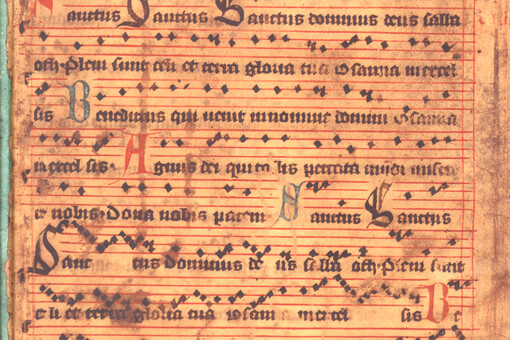 Sanctus Sanctus Sanctus dominus deus saba
oth Pleni sunt celi et terra gloria tua Osanna in excel
sis Benedictus qui uenit in nomine domini Osanna
in excel sis Agnus dei qui to lis peccata mūdi miser
e nobis Dona nobis pacem Sanctus Sanctus
Sanc tus dominus de us saba oth Pleni sunt
ce li et terra gloria tua osanna in excel sis Be